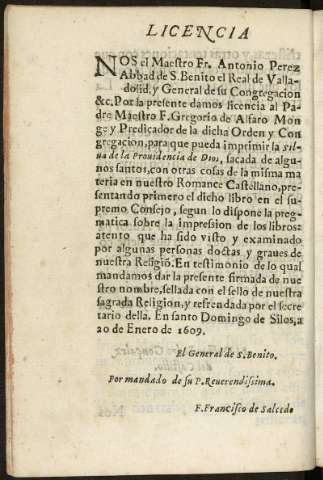 LICENCIA
NOS el Maestro Fr. Antonio Perez
Abbad de S. Benito el Real de Valla-
dolid, y General de su Congregacion
&c. Por la presente damos licencia al Pa-
dre Maestro F. Gregorio de Alfaro Mon
ge y Predicador de la dicha Orden y Con
gregacion, para que pueda imprimir la sil-
ua de la Prouidencia de Dios, sacada de algu-
nos santos, con otras cosas de la misma ma
teria en nuestro Romance Castellano, pre-
sentando primero el dicho libro en el su-
premo Consejo, segun lo dispone la preg-
matica sobre la impression de los libros:
atento que ha sido visto y examinado
por algunas personas doctas y graues de
nuestra Religiõ. En testimonio de lo qual
mandamos dar la presente firmada de nue
stro nombre, sellada con el sello de nuestra
sagrada Religion, y refrendada por el secre
tario della. En santo Domingo de Silos, a
20 de Enero de 1609.
El General de S. Benito.
Por mandado de su P. Reuerendissima.
F. Francisco de Salcedo